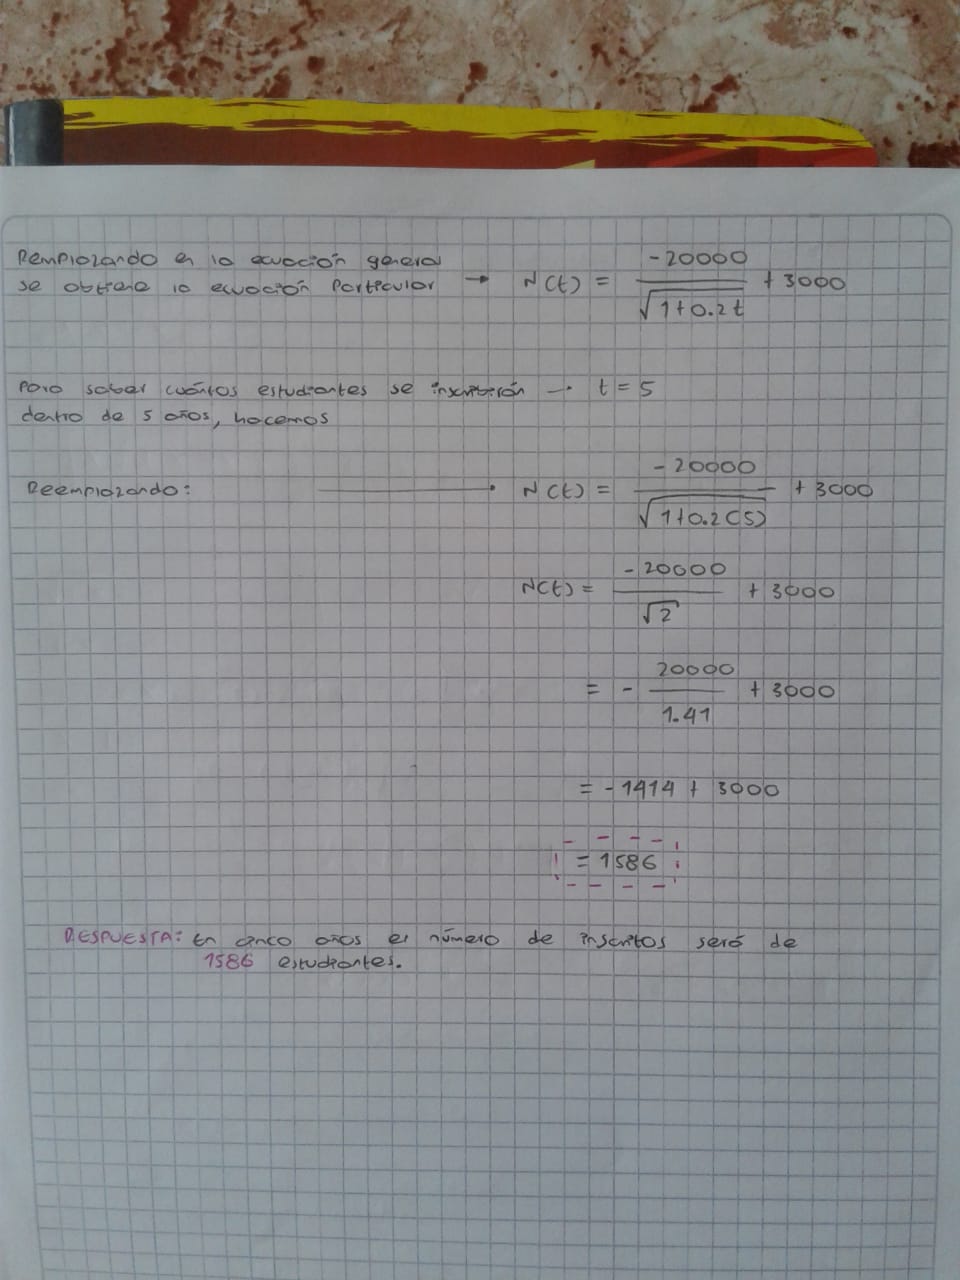 Remplazando en la ecuación general
se obtiene la ecuación particular → N(t) = -20000 / √1+0.2t + 3000
Para saber cuántos estudiantes se inscribirán → t = 5
dentro de 5 años, hacemos
Reemplazando: → N(t) = -20000 / √1+0.2(5) + 3000
N(t) = -20000 / √2 + 3000
= - 20000 / 1.41 + 3000
= -1414 + 3000
= 1586
RESPUESTA: En cinco años el número de inscritos será de
1586 estudiantes.